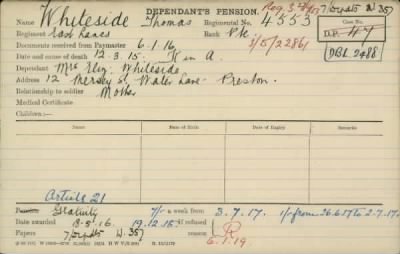 DEPENDANT'S PENSION.
Name Whiteside Thomas Regimental No. 4553
Case No.
Regiment Rank Pte
D.P. 47
1/5/22861
DBL. 2488
Documents received from Paymaster 6.1.16
Date and cause of death 12.3.15. K in A.
Dependant Mrs Eliz. Whiteside
Address 12 Mersey St Water Lane Preston.
Relationship to soldier Mother
Medical Certificate
Children:—
Name
Date of Birth
Date of Expiry
Article 21
Pension Gratuity 7/- a week from 3.7.17. 1/- from 26.6.17 to 2.7.17.
Date awarded 13.5.16. 19.12.16. if refused
Papers reason R
6.1.19.